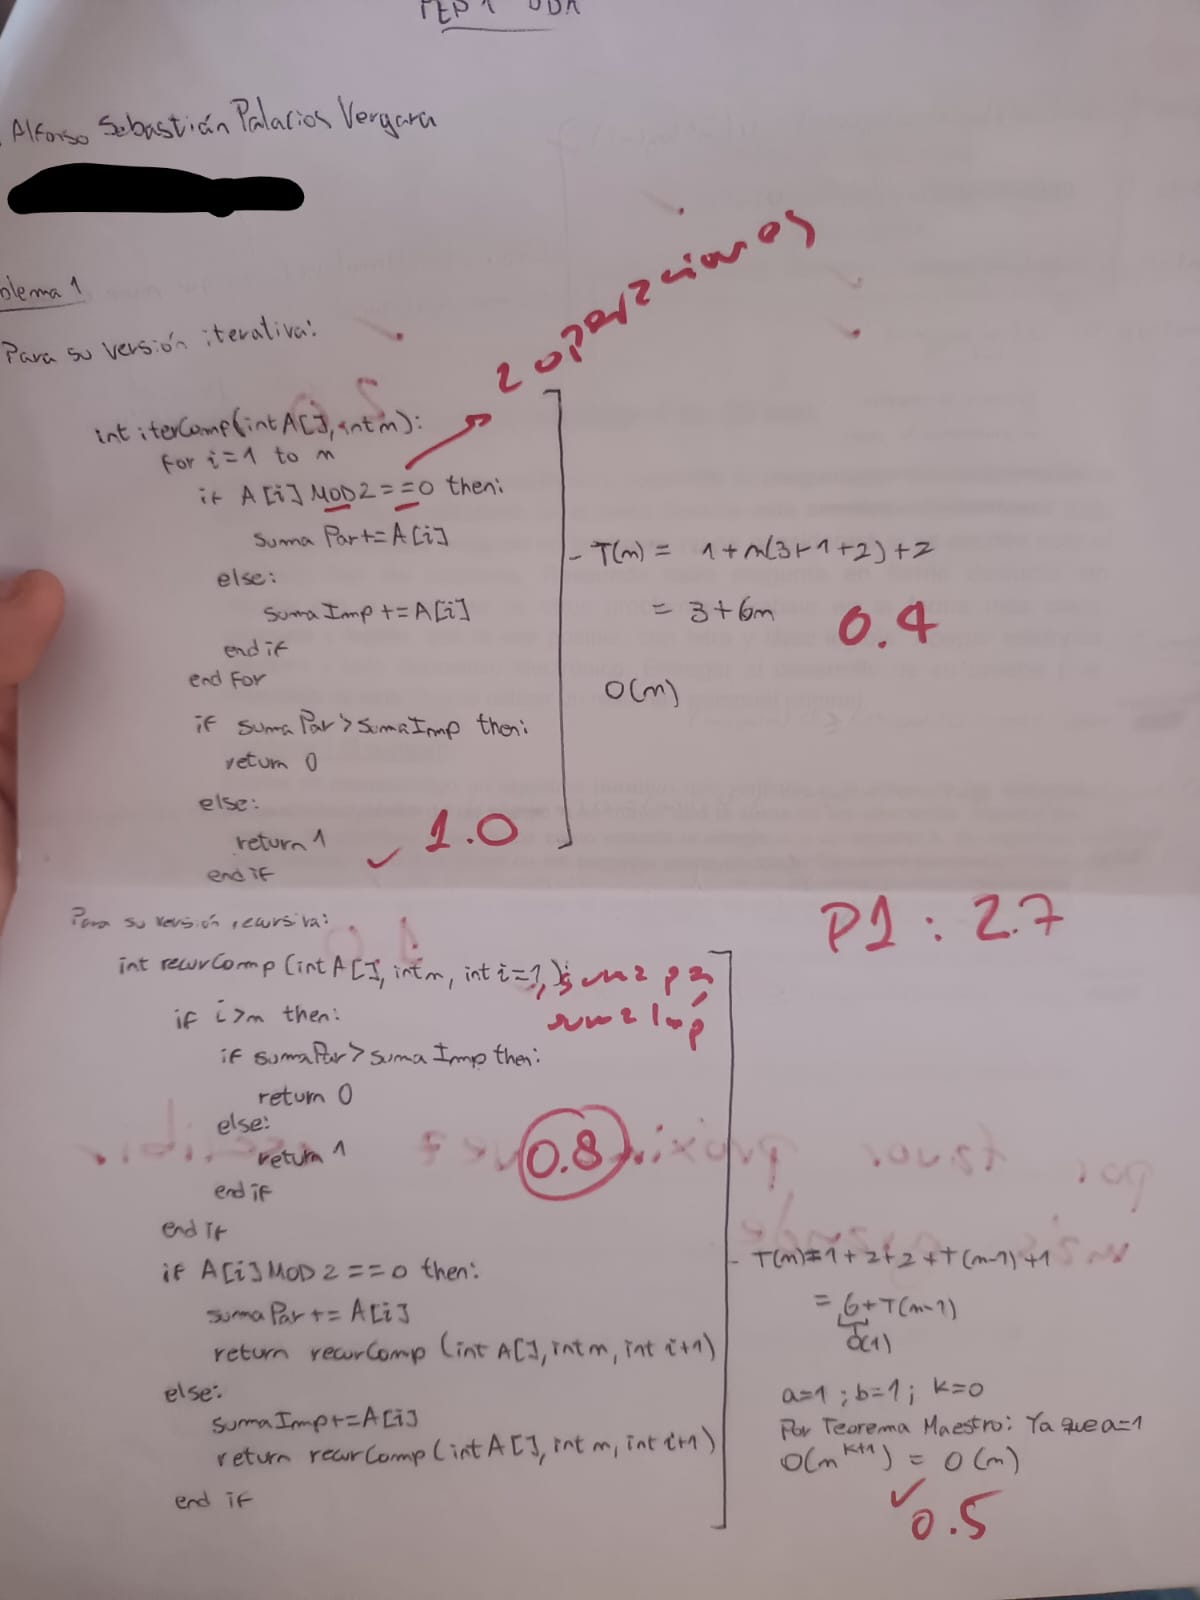 PEP 1 UDA
Alfonso Sebastián Palacios Vergara
oblema 1
Para su versión iterativa:
2 operaciones
int iterComp(int A[], int n):
for i=1 to n
if A[i] MOD 2 == 0 then:
suma Par += A[i]
else:
suma Imp += A[i]
end if
end for
if suma Par > suma Imp then:
return 0
else:
return 1
end if
1.0
- T(n) = 1 + n(3+1+2)+2
= 3+6n
0.4
O(n)
P1: 2.7
Para su versión recursiva:
int recurComp (int A[], int n, int i=1, ):
suma par
suma Imp
if i>n then:
if suma Par > suma Imp then:
return 0
else:
return 1
end if
end if
0.8
if A[i] MOD 2 == 0 then:
suma Par += A[i]
return recurComp (int A[], int n, int i+1)
else:
suma Imp += A[i]
return recurComp (int A[], int n, int i+1)
end if
- T(n) = 1+2+2+T(n-1)+1
= 6+T(n-1)
O(1)
a=1 ; b=1 ; k=0
Por Teorema Maestro: Ya que a=1
O(n^k+1) = O(n)
0.5
por favor próxima vez escribir
más grande